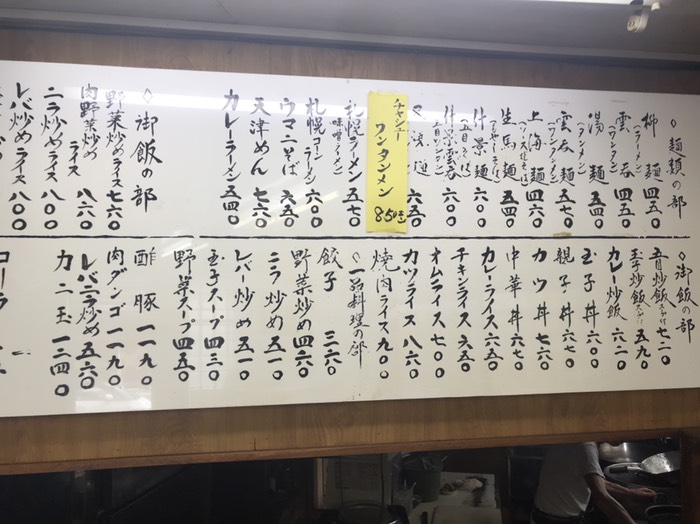 ◇麺類の部
柳麺(ラーメン) 四五〇
雲呑(ワンタン) 四五〇
湯麺(タンメン) 五四〇
雲呑麺(ワンタンメン) 五七〇
上海麺 五四〇
生馬麺 五四〇
什景麺 六〇〇
什景雲呑 六〇〇
六五〇
チャシュー
ワンタンメン 850
札幌ラーメン 五七〇
味噌ラーメン
札幌コーンラーメン 六〇〇
ウマニそば 六五〇
天津めん 七六〇
カレーラーメン 五四〇
◇御飯の部
野菜炒めライス 七六〇
肉野菜炒めライス 八六〇
ニラ炒めライス 八〇〇
レバ炒めライス 八〇〇
◇御飯の部
五目炒飯スープ付 七二〇
玉子炒飯スープ付 五九〇
カレー炒飯 六二〇
玉子丼 五七〇
親子丼 六七〇
カツ丼 七六〇
中華丼 六七〇
カレーライス 五四〇
チキンライス 六五〇
オムライス 七〇〇
カツライス 八六〇
焼肉ライス 九〇〇
◇一品料理の部
餃子 三六〇
野菜炒め 四六〇
ニラ炒め 五一〇
レバー炒め 五一〇
玉子スープ 四三〇
野菜スープ 四五〇
酢豚 一一九〇
肉ダンゴ 一一九〇
レバニラ炒め 五六〇
カニ玉 一三四〇
コーラ